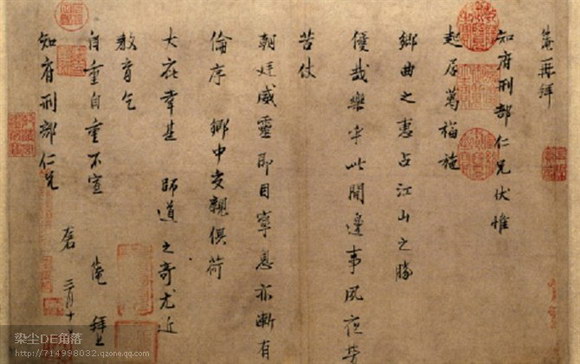 淹再拜
知府刑部仁兄伏惟
起居萬福施
鄉曲之惠占江山之勝
優哉樂乎此間邊事夙夜勞
苦仗
朝廷威靈即目寧息亦漸有
倫序 鄉中交親俱荷
大庇幸甚 師道之奇尤近
教育乞
自重自重不宣 淹 拜上
知府刑部仁兄 三月十
染尘DE角落
http://714998032.qzone.qq.com